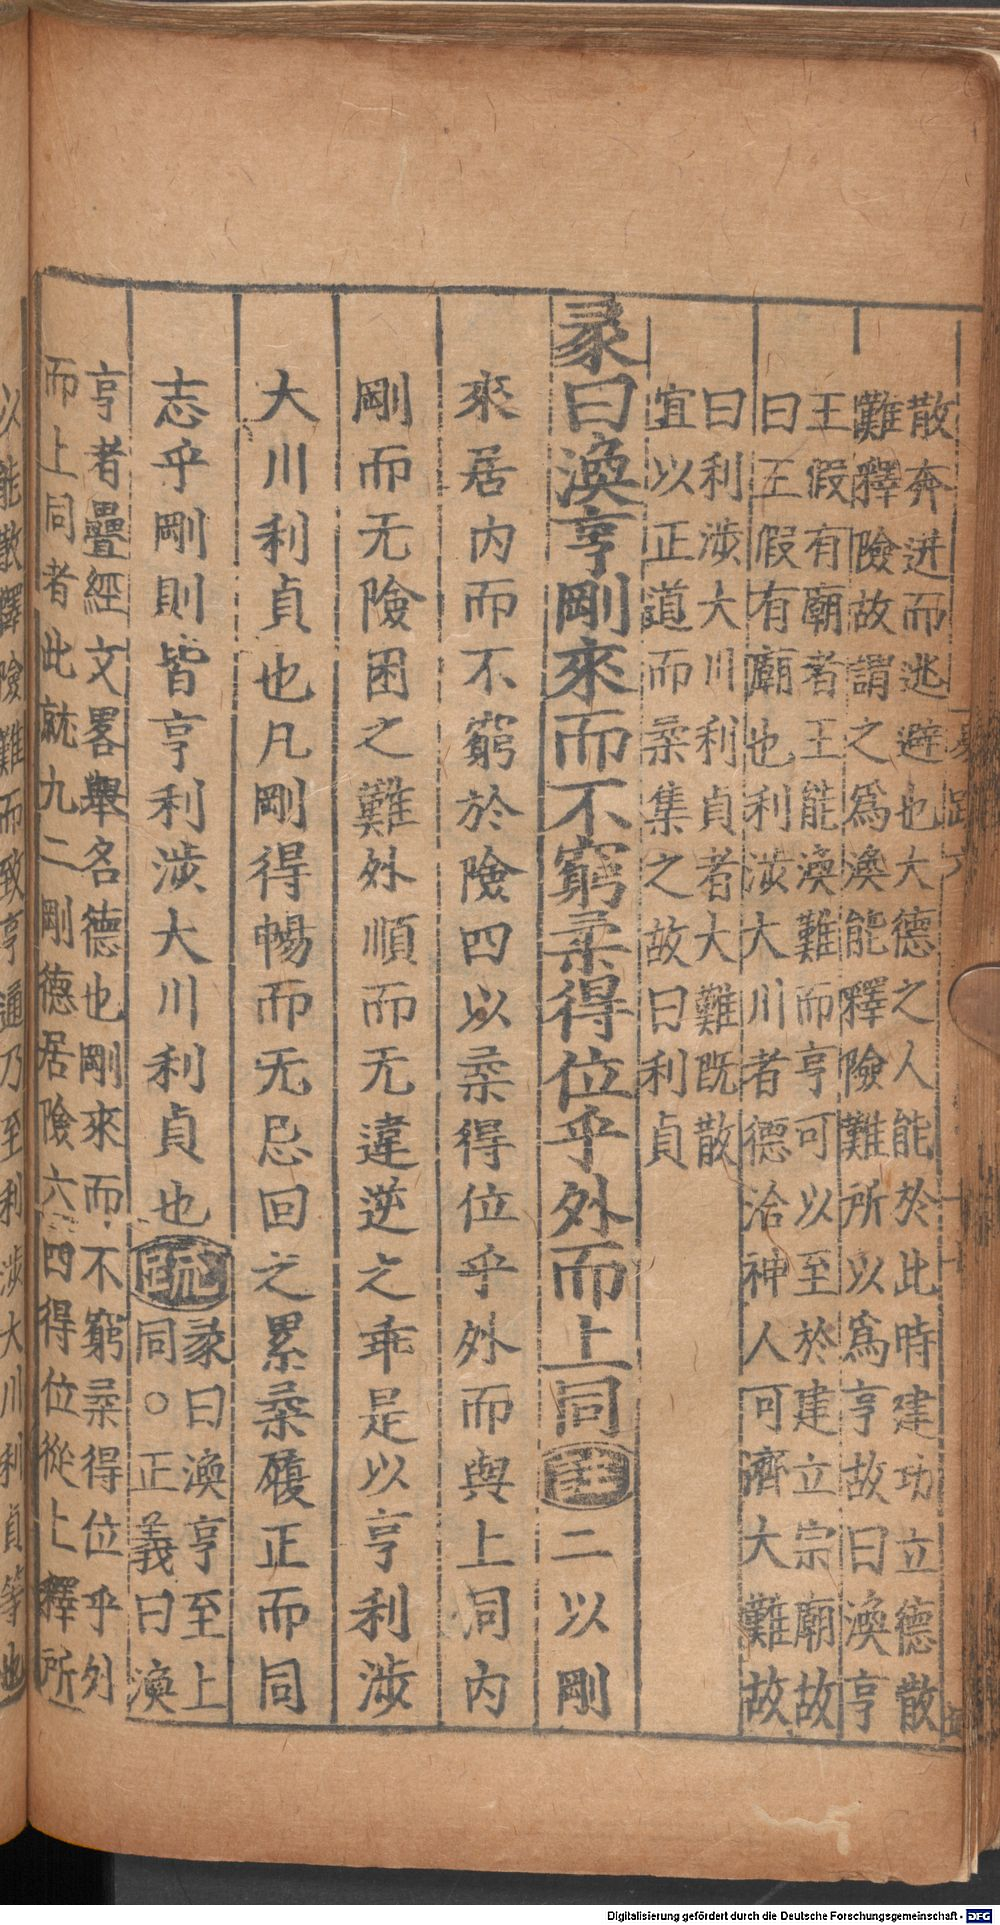 散奔迸而逃避也大德之人能於此時建功立德散
難釋險故謂之爲渙能釋險難所以爲亨故曰渙亨
王假有廟者王能渙難而亨可以至於建立宗廟故
曰王假有廟也利涉大川者德洽神人可濟大難故
曰利涉大川利貞者大難既散
宜以正道而柔集之故曰利貞
彖曰渙亨剛來而不窮柔得位乎外而上同註二以剛
來居內而不窮於險四以柔得位乎外而與上同內
剛而无險困之難外順而无違逆之乖是以亨利涉
大川利貞也凡剛得暢而无忌回之累柔履正而同
志乎剛則皆亨利涉大川利貞也疏
彖曰渙亨至上
同○正義曰渙
亨者疊經文畧舉名德也剛來而不窮柔得位乎外
而上同者此就九二剛德居險六四得位從上釋所
以能散釋險難而致亨通乃至利涉大川利貞等也
Digitalisierung gefördert durch die Deutsche Forschungsgemeinschaft - DFG